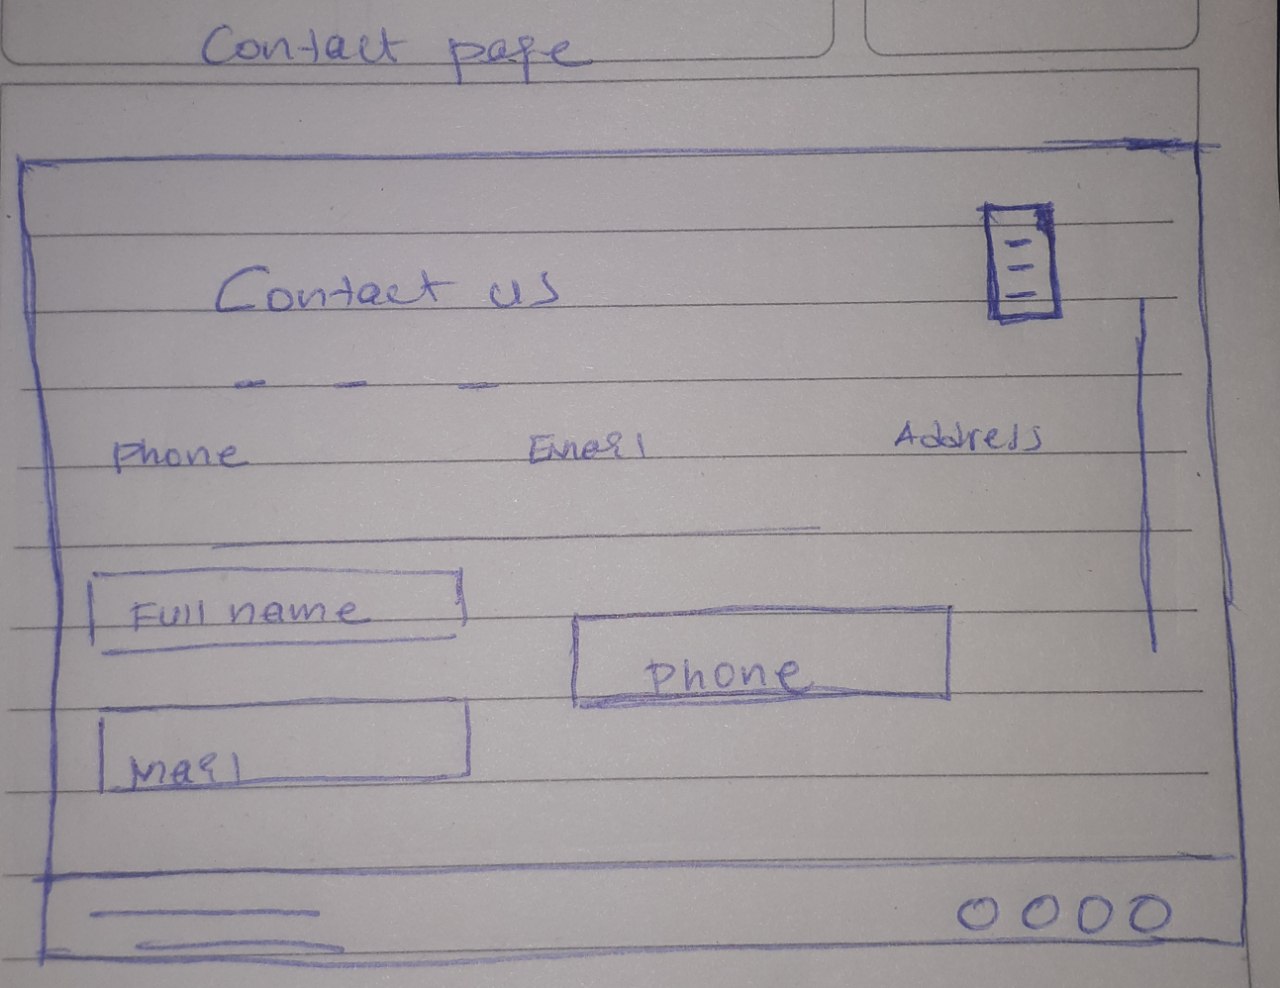 Contact page
Contact us
Phone Email Address
Full name
Phone
Mail